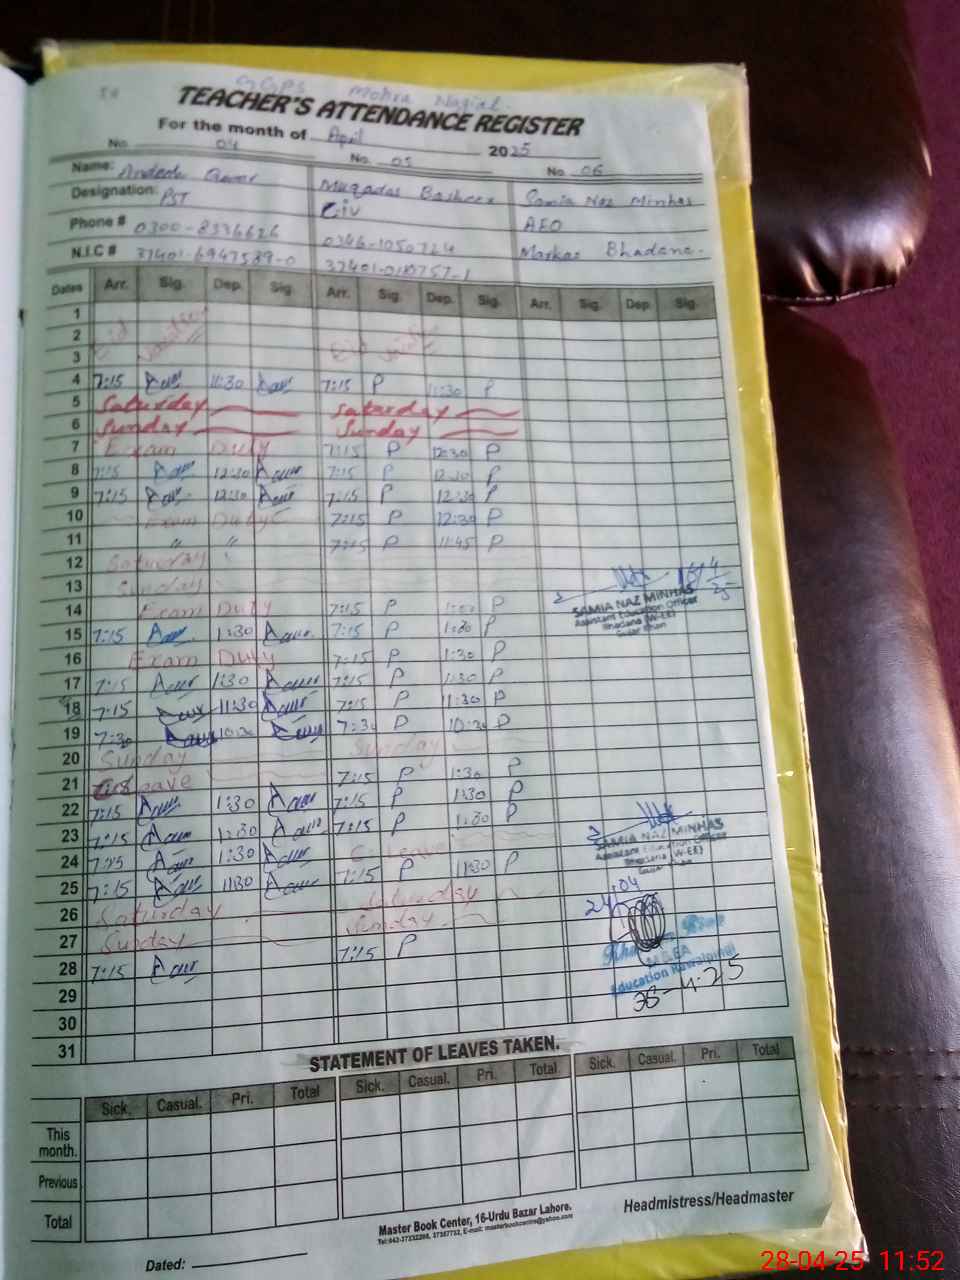 GGPS Mohra Nagial.
TEACHER'S ATTENDANCE REGISTER
For the month of April 2025
No. 04 No. 05 No. 06
Name: Muqadas Basheer Samia Naz Minhas
Designation: PST Civ AEO
Phone # 0300-8336626 0346-1050764 Markaz Bhadana.
N.I.C # 37401-6947589-0
Dates Arr. Sig. Dep. Sig Arr. Sig. Dep. Sig. Arr. Sig. Dep Sig.
1
2
3 Eid Eid
4 7:15 11:30 7:15 P 11:30 P
5 Saturday Saturday
6 Sunday Sunday
7 Exam Duty 7:15 P 12:30 P
8 7:15 12:30 7:15 P 12:30 P
9 7:15 12:30 7:15 P 12:30 P
10 Exam Duty 7:15 P 12:30 P
11 " " 7:15 P 11:45 P
12 Saturday
13 Sunday
14 Exam Duty 7:15 P P
15 7:15 1:30 7:15 P 1:30 P
16 Exam Duty 7:15 P 1:30 P
17 7:15 1:30 7:15 P 1:30 P
18 7:15 11:30 7:15 P 11:30 P
19 7:30 10:30 7:30 P 10:30 P
20 Sunday Sunday
21 Leave 7:15 P 1:30 P
22 7:15 1:30 7:15 P 1:30 P
23 7:15 12:30 7:15 P 1:30 P
24 7:15 1:30 C. Leave
25 7:15 11:30 7:15 P 11:30 P
26 Saturday Saturday
27 Sunday Sunday
28 7:15 7:15 P
29
30
31
16/4/25
SAMIA NAZ MINHAS
Assistant Education Officer
Bhadana (W-EE)
Gujar Khan
SAMIA NAZ MINHAS
Assistant Education Officer
Bhadana (W-EE)
24/04
MEA
Education Rawalpindi
28-4-25
STATEMENT OF LEAVES TAKEN.
Sick. Casual. Pri. Total Sick. Casual. Pri. Total Sick. Casual. Pri. Total
This month.
Previous
Total
Master Book Center, 16-Urdu Bazar Lahore.
Headmistress/Headmaster
Dated:
28-04-25 11:52